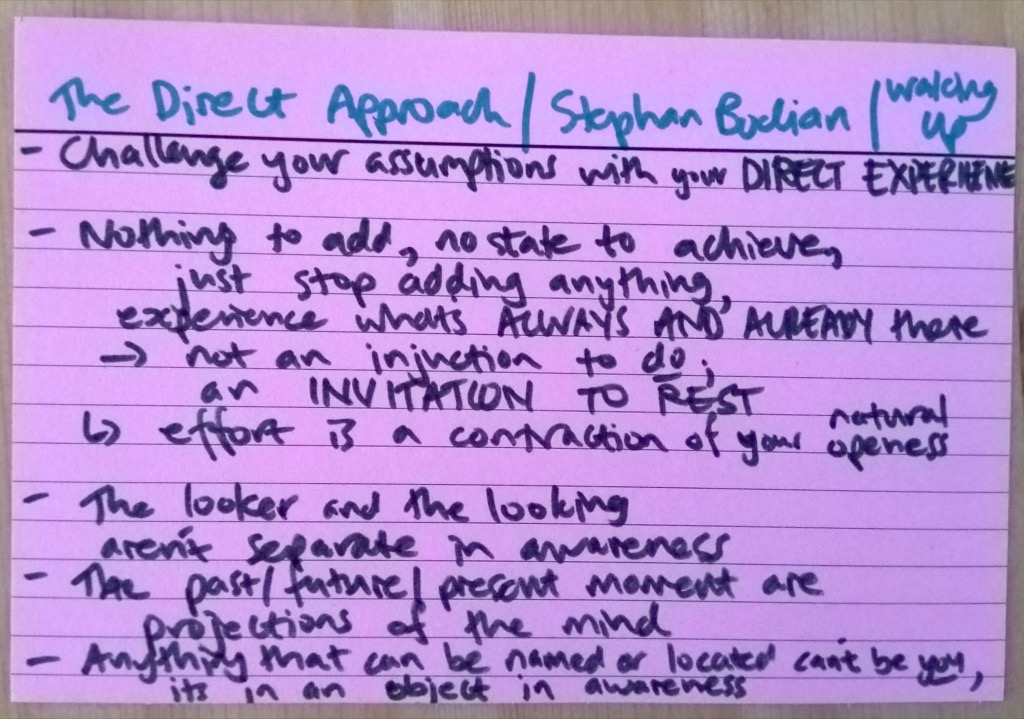 The Direct Approach / Stephan Bodian / Waking Up
- Challenge your assumptions with your DIRECT EXPERIENCE
- Nothing to add, no state to achieve,
just stop adding anything,
experience whats ALWAYS AND ALREADY there
→ not an injuction to do;
an INVITATION TO REST
↳ effort is a contraction of your natural openess
- The looker and the looking
aren't separate in awareness
- The past/future/present moment are
projections of the mind
- Anything that can be named or located can't be you,
its in an object in awareness